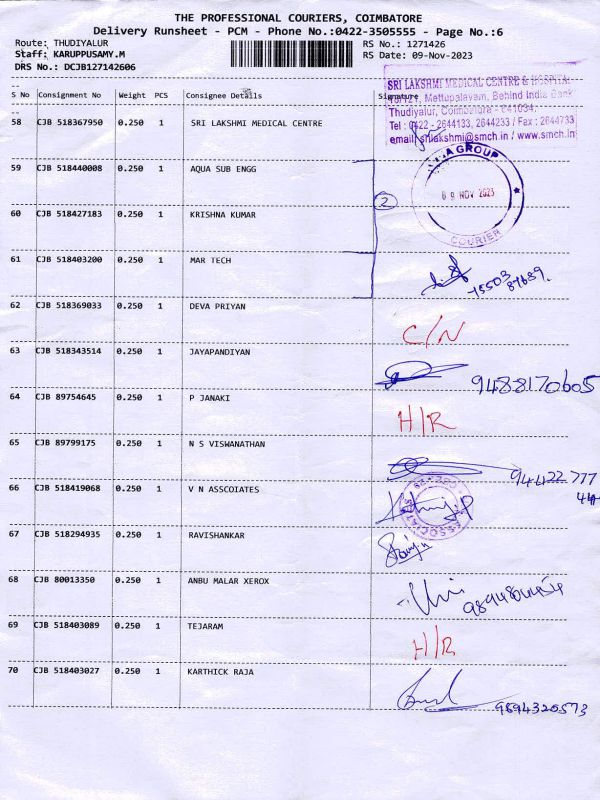 THE PROFESSIONAL COURIERS, COIMBATORE
Delivery Runsheet - PCM - Phone No.:0422-3505555 - Page No.:6
Route: THUDIYALUR RS No.: 1271426
Staff: KARUPPUSAMY.M RS Date: 09-Nov-2023
DRS No.: DCJB127142606
S No Consignment No Weight PCS Consignee Details Signature
SRI LAKSHMI MEDICAL CENTRE & HOSPITAL
Mettupalayam, Behind India Bank
Thudiyalur, Coimbatore - 641034.
Tel : 0422 - 2644133, 2644233 / Fax : 2644733
/ www.smch.in
58 CJB 518367950 0.250 1 SRI LAKSHMI MEDICAL CENTRE
59 CJB 518440008 0.250 1 AQUA SUB ENGG
GROUP
09 NOV 2023
COURIER
2
60 CJB 518427183 0.250 1 KRISHNA KUMAR
61 CJB 518403200 0.250 1 MAR TECH
62 CJB 518369033 0.250 1 DEVA PRIYAN C/N
63 CJB 518343514 0.250 1 JAYAPANDIYAN 9488170605
64 CJB 89754645 0.250 1 P JANAKI H/R
65 CJB 89799175 0.250 1 N S VISWANATHAN 94422 777
66 CJB 518419068 0.250 1 V N ASSCOIATES
67 CJB 518294935 0.250 1 RAVISHANKAR
68 CJB 80013350 0.250 1 ANBU MALAR XEROX
69 CJB 518403089 0.250 1 TEJARAM H/R
70 CJB 518403027 0.250 1 KARTHICK RAJA 9894320573